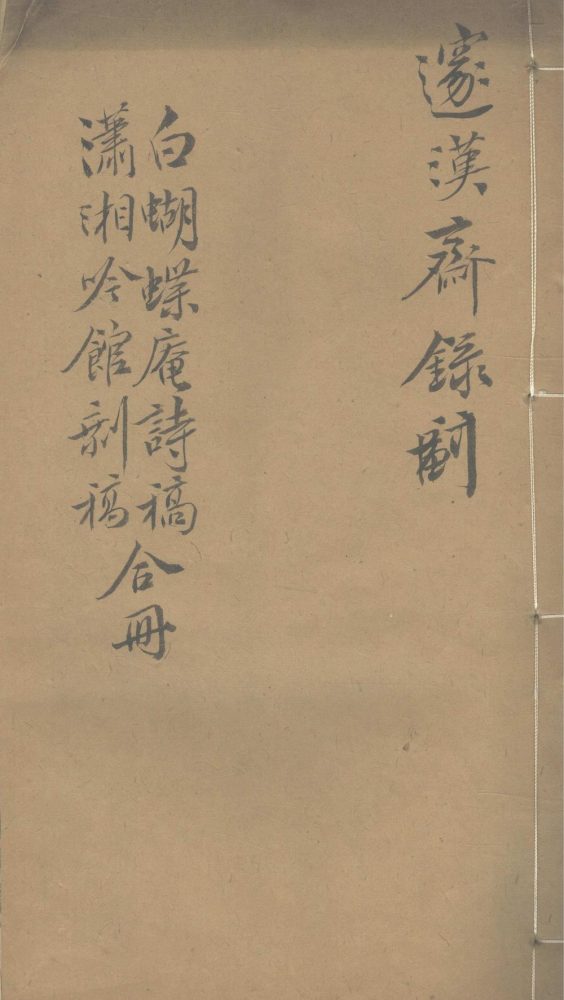 邃漢齋錄副
白蝴蝶庵詩稿
瀟湘吟館剩稿
合冊